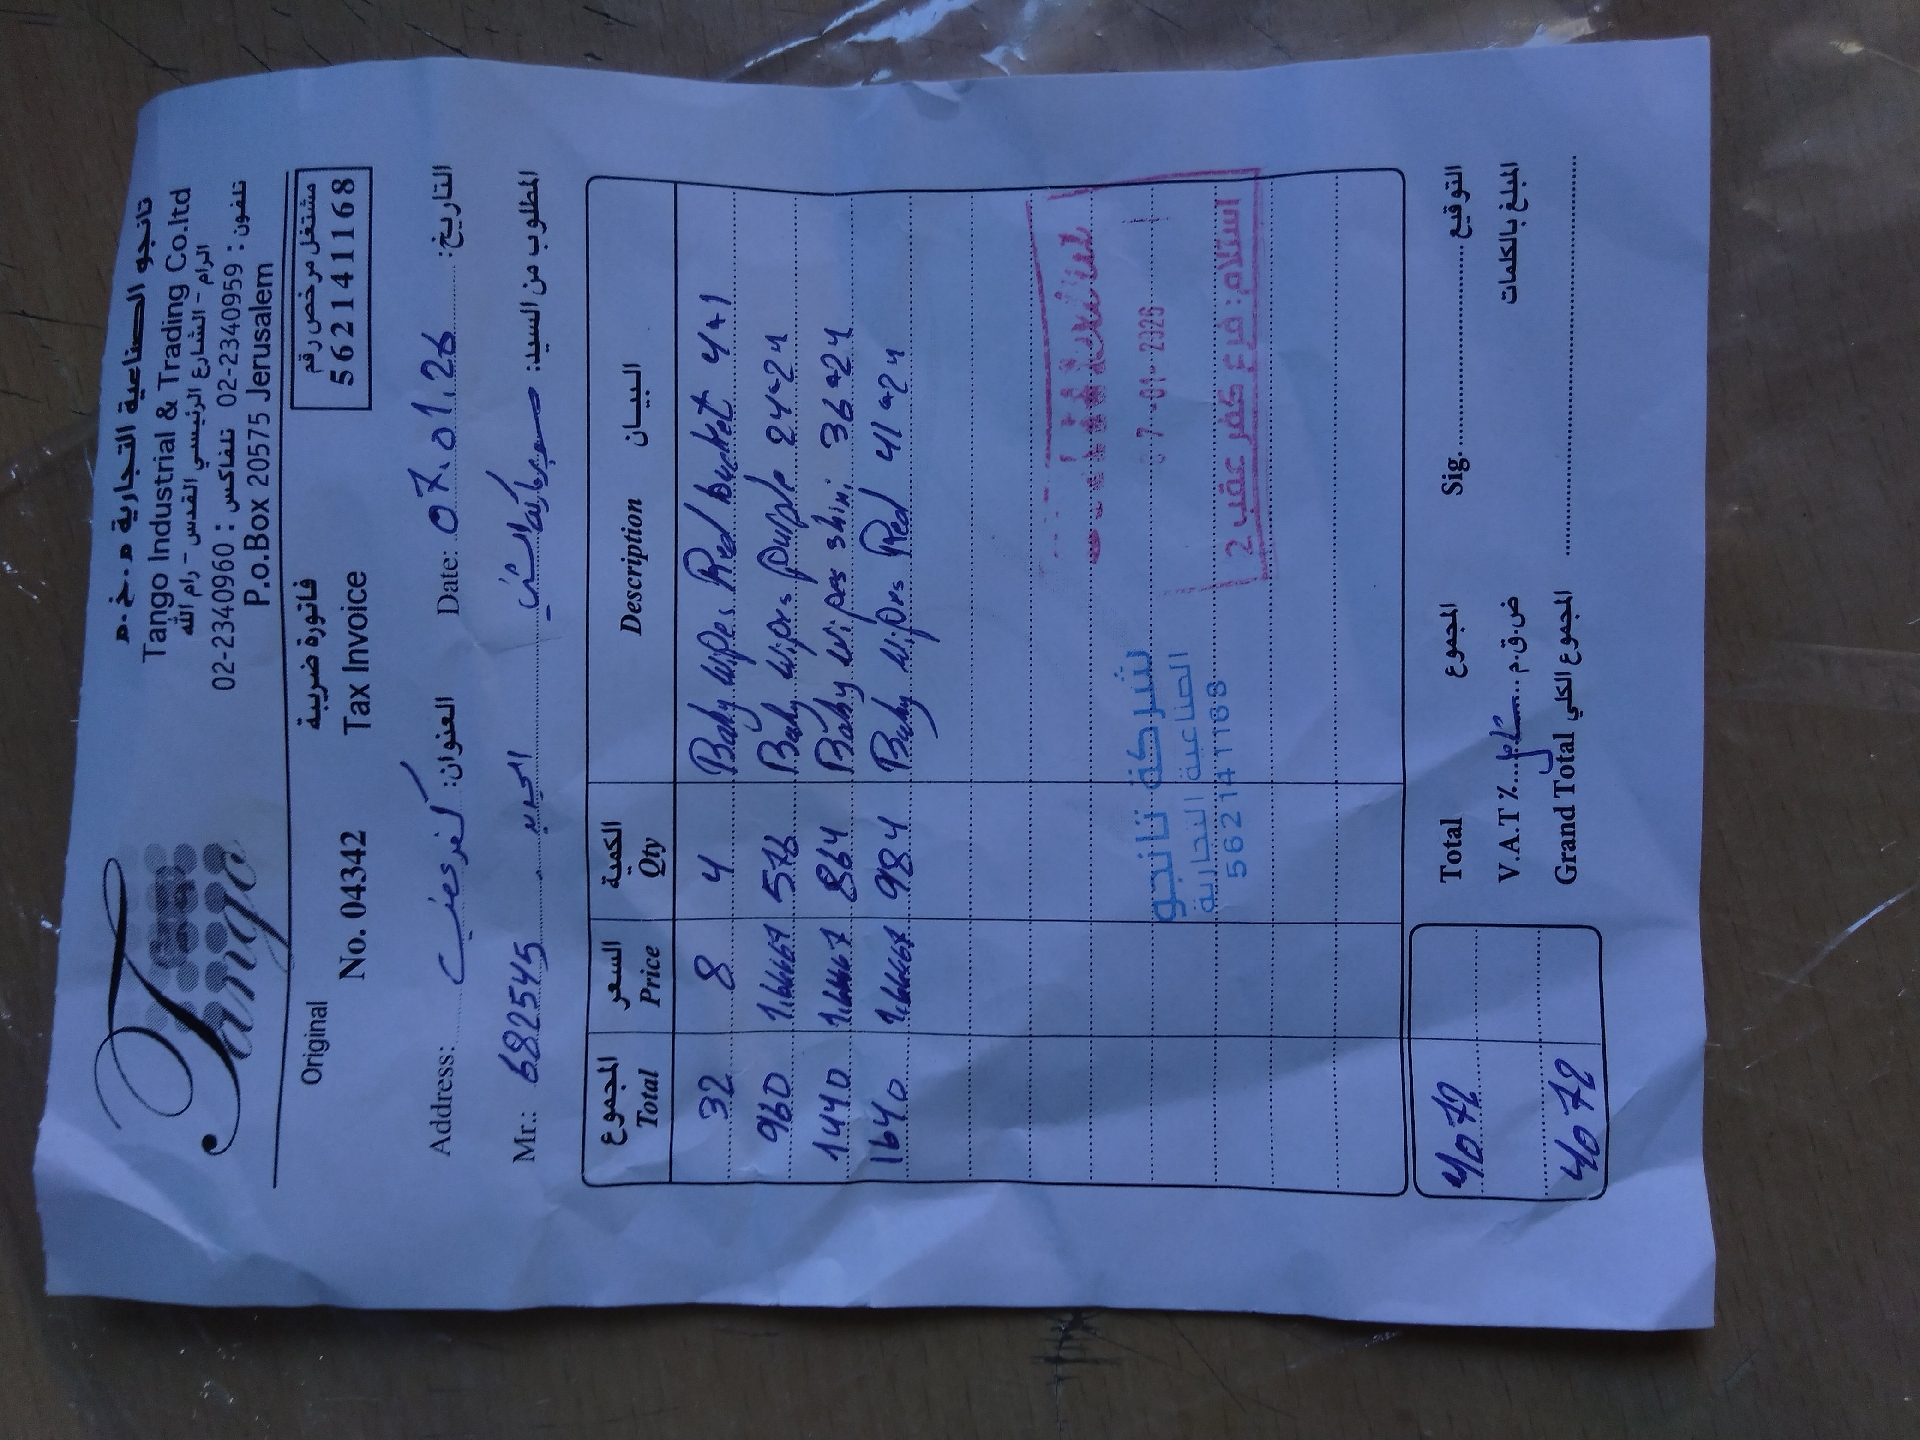 Tango
تانجو الصناعية التجارية م.خ.م
Tango Industrial & Trading Co.ltd
الرام - الشارع الرئيسي القدس - رام الله
تلفون : 02-2340959 تلفاكس : 02-2340960
P.o.Box 20575 Jerusalem
مشتغل مرخص رقم
562141168
فاتورة ضريبية
Original
No. 04342 Tax Invoice
Address: العنوان: Date: 07.01.26 التاريخ:
Mr.: 682545 المطلوب من السيد:
المجموع السعر الكمية البيــان
Total Price Qty Description
32 8 4 Baby wipes Red bucket 4+1
960 1.66667 576 Baby wipes purple 24*24
1440 1.66667 864 Baby wipes shini 36*24
1640 1.66667 984 Baby wipes Red 41*24
شركة تانجو
الصناعية التجارية
562141168
07-01-2026
استلام: فرع كفر عقب 2
4072 Total المجموع Sig. التوقيع
V.A.T ٪ شامل ض.ق.م المبلغ بالكلمات
4072 Grand Total المجموع الكلي